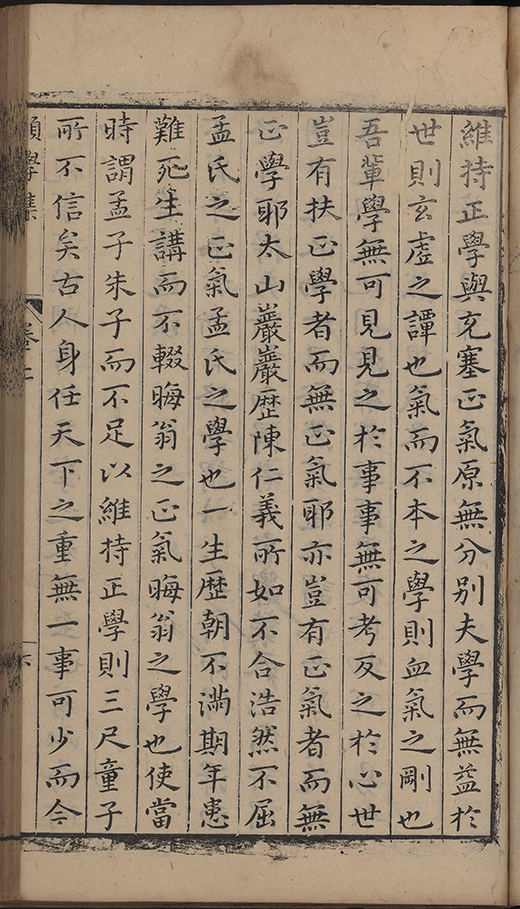 維持正學與充塞正氣原無分别夫學而無益於
世則玄虛之譚也氣而不本之學則血氣之剛也
吾輩學無可見見之於事事無可考反之於心世
豈有扶正學者而無正氣耶亦豈有正氣者而無
正學耶太山巖巖歷陳仁義所如不合浩然不屈
孟氏之正氣孟氏之學也一生歷朝不滿期年患
難死生講而不輟晦翁之正氣晦翁之學也使當
時謂孟子朱子而不足以維持正學則三尺童子
所不信矣古人身任天下之重無一事可少而今
學集
卷二